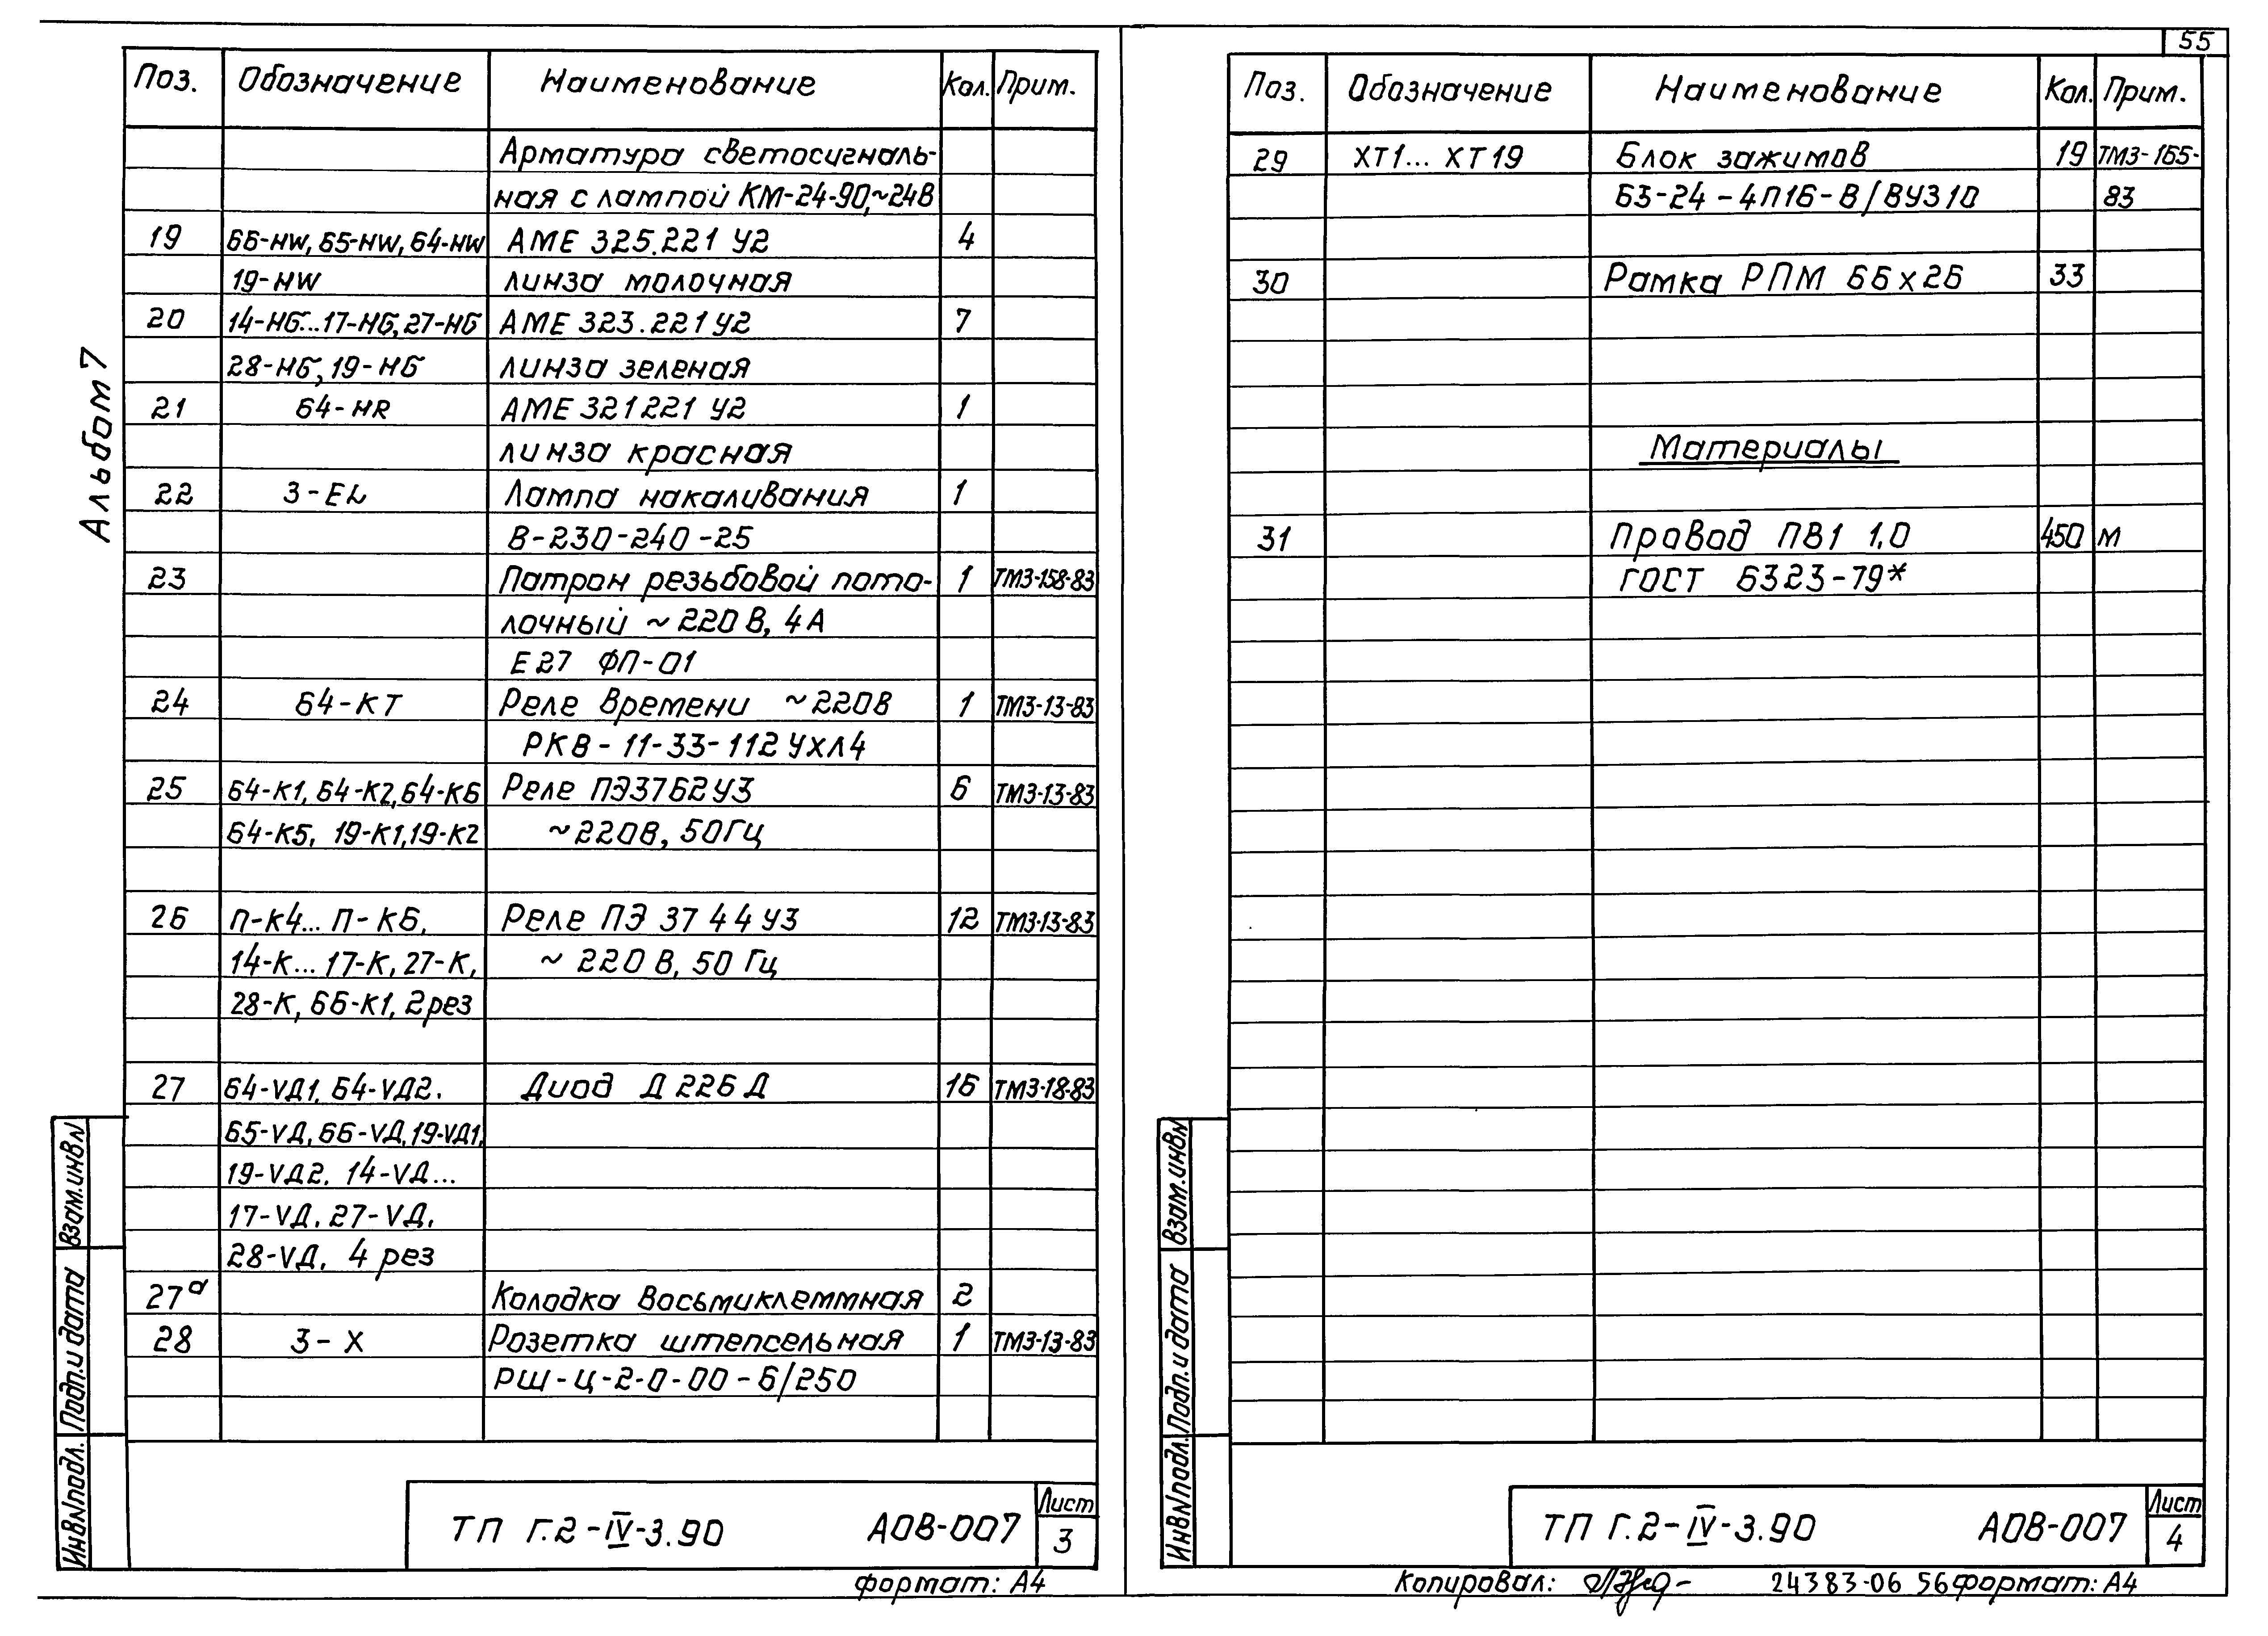 55
Альбом 7
Поз. Обозначение Наименование Кол. Прим.
Арматура светосигналь-
ная с лампой КМ-24-90,~24В
19 66-HW, 65-HW, 64-HW АМЕ 325.221 У2 4
19-HW линза молочная
20 14-HG...17-HG, 27-HG АМЕ 323.221 У2 7
28-HG, 19-HG линза зеленая
21 64-HR АМЕ 321221 У2 1
линза красная
22 3-EL Лампа накаливания 1
В-230-240-25
23 Патрон резьбовой пото- 1 ТМ3-158-83
лочный ~ 220 В, 4А
Е27 ФП-01
24 64-КТ Реле времени ~220В 1 ТМ3-13-83
РКВ-11-33-112 УХЛ4
25 64-К1, 64-К2, 64-К6 Реле ПЭ3762У3 6 ТМ3-13-83
64-К5, 19-К1, 19-К2 ~220В, 50Гц
26 П-К4... П-К6, Реле ПЭ 37 44 У3 12 ТМ3-13-83
14-К... 17-К, 27-К, ~ 220 В, 50 Гц
28-К, 66-К1, 2 рез
27 64-VД1, 64-VД2. Диод Д 226 Д 16 ТМ3-18-83
65-VД, 66-VД, 19-VД1,
19-VД2, 14-VД...
17-VД, 27-VД,
28-VД, 4 рез
27а Колодка восьмиклеммная 2
28 3-Х Розетка штепсельная 1 ТМ3-13-83
РШ-Ц-2-0-00-6/250
Взам.инвN
Подп.и дата
ИнвNподл.
ТП Г.2-IV-3.90 АОВ-007 Лист
3
формат: А4
Поз. Обозначение Наименование Кол. Прим.
29 ХТ1... ХТ19 Блок зажимов 19 ТМ3-165-
Б3-24-4П16-В/ВУ310 83
30 Рамка РПМ 66х26 33
Материалы
31 Провод ПВ1 1,0 450 м
ГОСТ 6323-79*
Взам.инвN
Подп.и дата
ИнвNподл.
ТП Г.2-IV-3.90 АОВ-007 Лист
4
Копировал: 24383-06 56 формат: А4